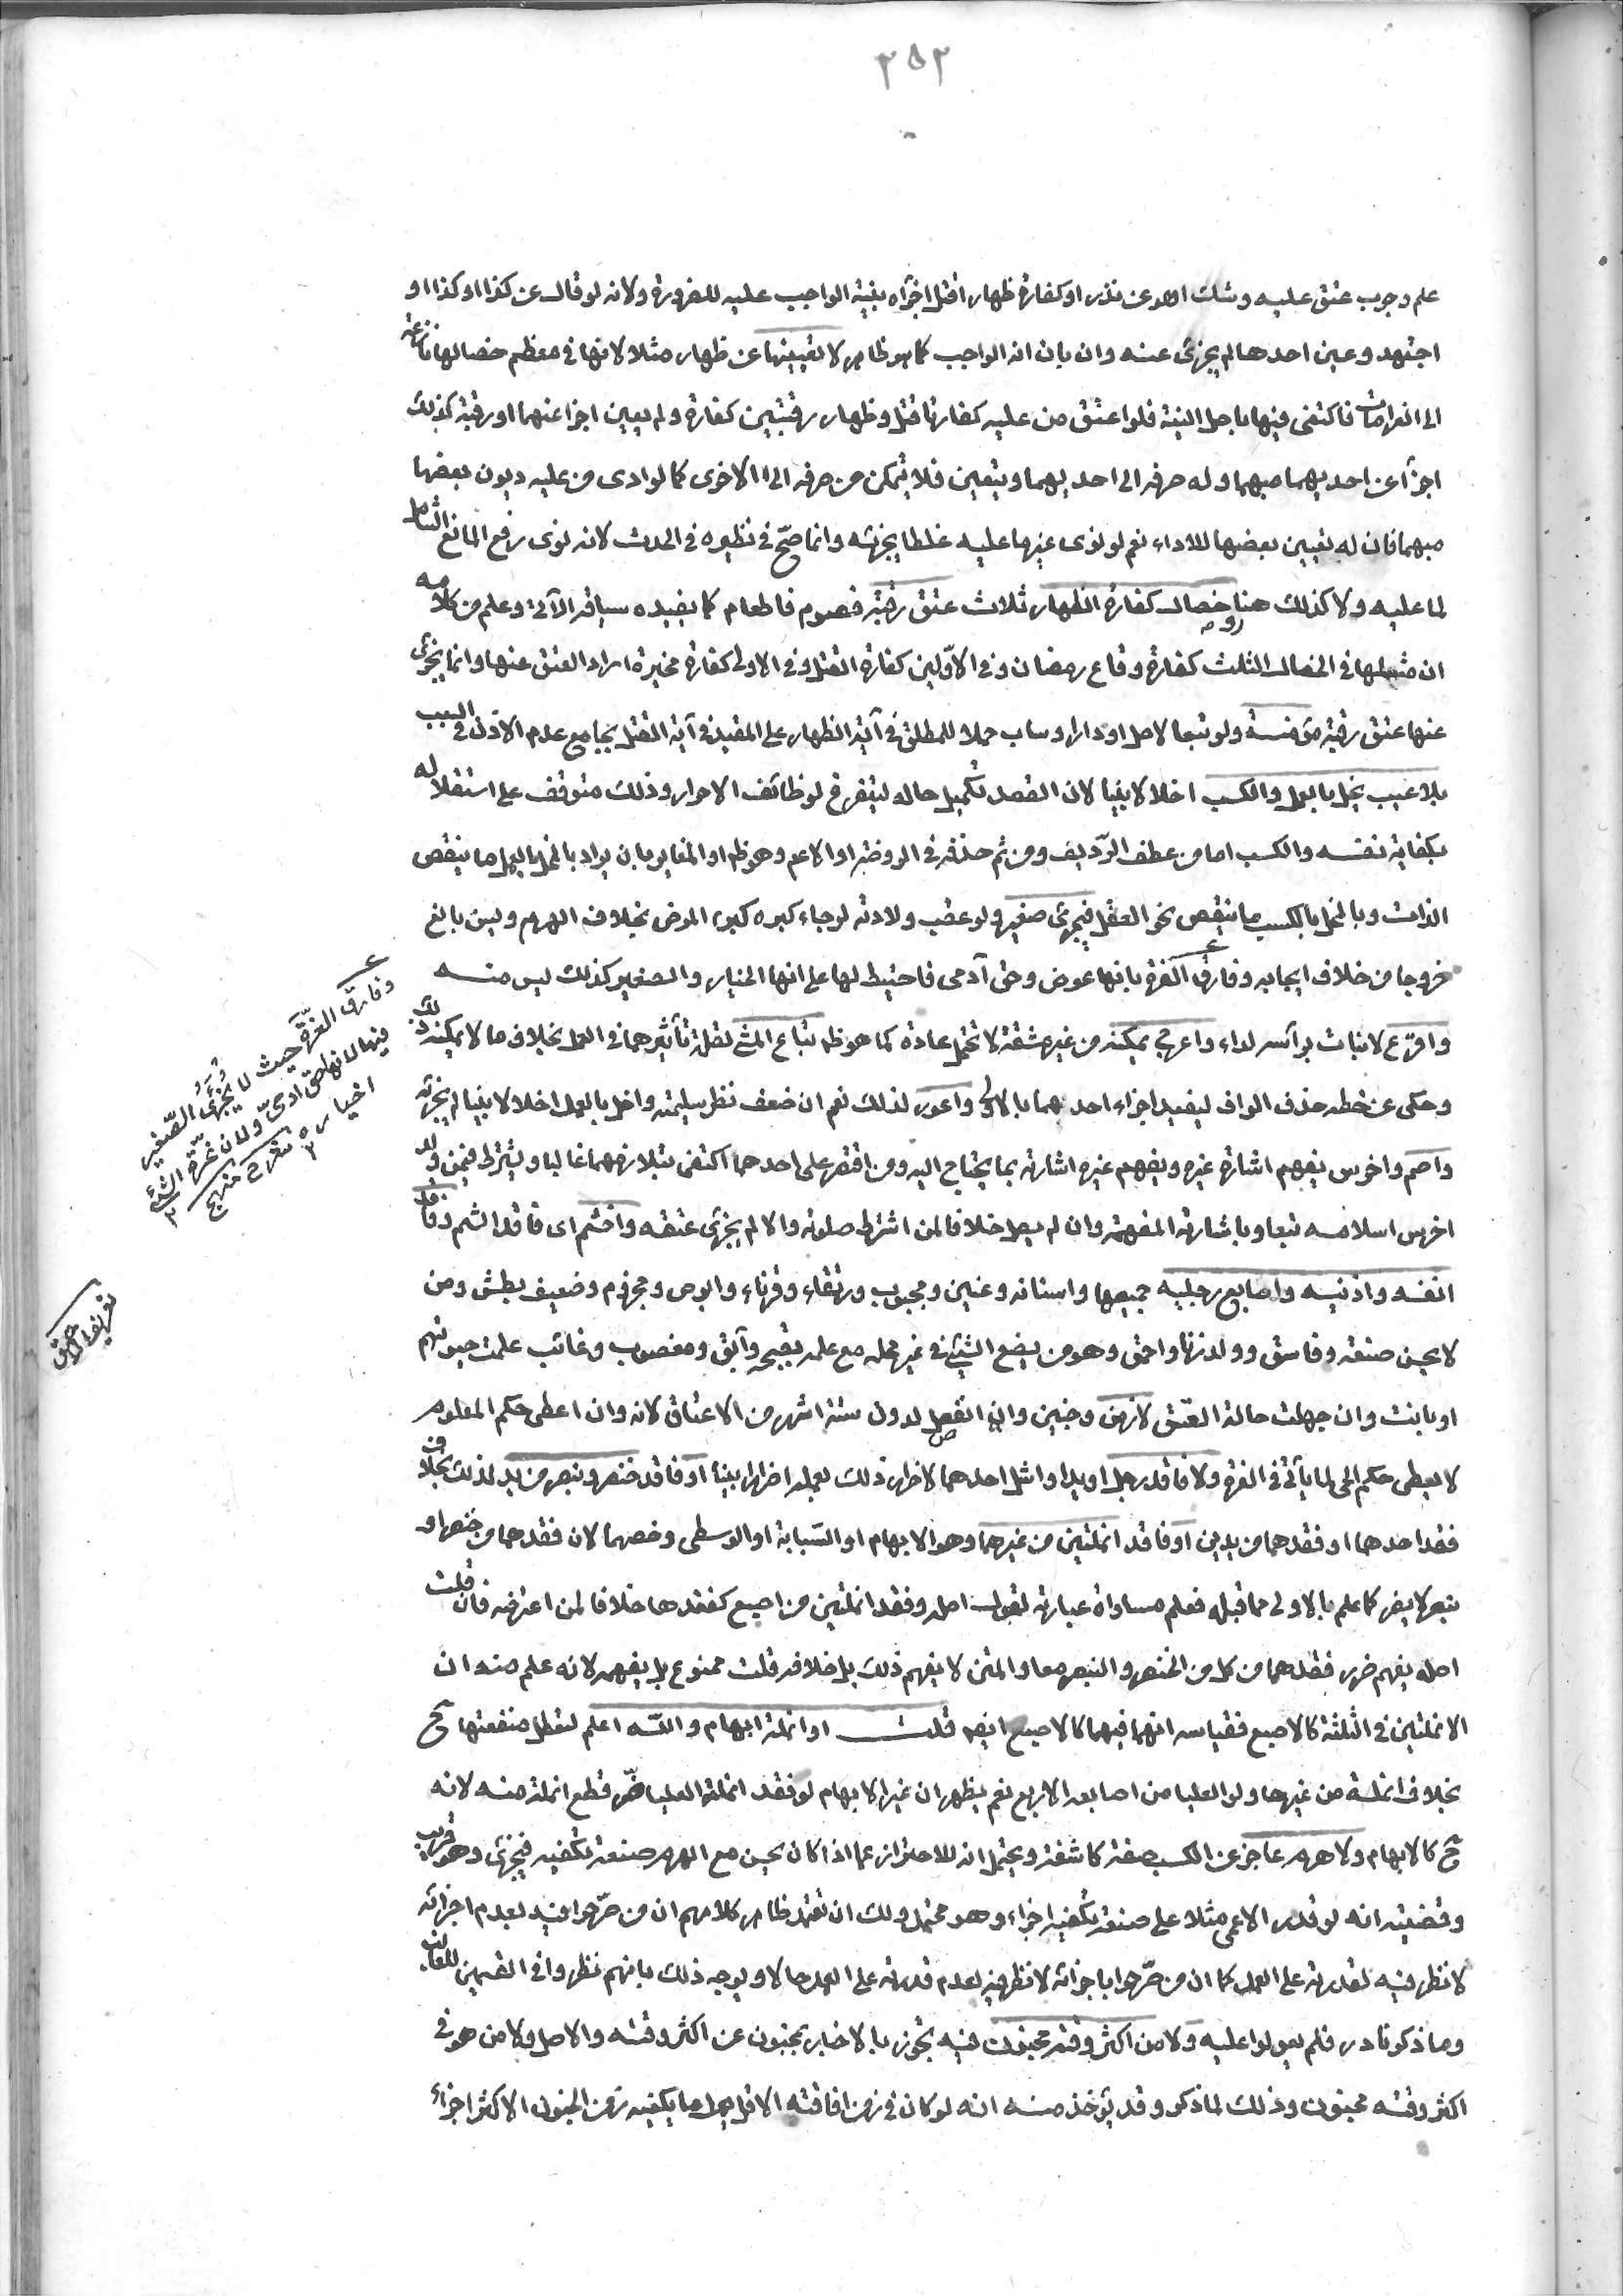 ٣٥٢
علم وجوب عتق عليه وشك اهو عن نذر او كفارة ظهار او قتل اجزأه بنية الواجب عليه للضرورة ولانه لو قال عن كذا او كذا او
اجتهد وعين احدها لم يجزئ عنه وان بان انه الواجب كما هو ظاهر لا تعيينها عن ظهار مثلا لانها في معظم خصالها نازعة
الى الغرامات فاكتفى فيها باصل النية فلو اعتق من عليه كفارتا قتل وظهار رقبتين كفارة ولم يعين اجزأ عنهما او رقبة كذلك
اجزأ عن احديهما مبهما وله صرفه الى احديهما ويتعين فلا يتمكن من صرفه الى الاخرى كما لو ادى من عليه ديون بعضها
مبهما فان له تعيين بعضها للاداء نعم لو نوى غير ما عليه غلطا لم يجزئه وانما صح في نظيره في الحدث لانه نوى رفع المانع الشامل
لما عليه ولا كذلك هنا وخصال كفارة الظهار ثلاث عتق رقبة فصوم فاطعام كما يفيده سياقه الآتي وعلم من كلامه
ان مثلها في الخصال الثلث كفارة وقاع رمضان وفي الاولين كفارة القتل وفي الاولى كفارة مخيرة اراد العتق عنها وانما يجزئ
عنها عتق رقبة مؤمنة ولو تبعا لاصل او دار او ساب حملا للمطلق في آية الظهار على المقيد في آية القتل بجامع عدم الاذن في السبب
بلا عيب يخل بالعمل والكسب اخلالا بينا لان القصد تكميل حاله ليتفرغ لوظائف الاحرار وذلك متوقف على استقلاله
بكفاية نفسه والكسب اما من عطف الرديف ومن ثم حذفه في الروضة او الاعم وهو ظاهر او المغاير بان يراد بالمخل بالعمل ما ينقص
الذات وبالمخل بالكسب ما ينقص نحو العقل فيجزئ صغير ولو عقب ولادته لرجاء كبره كبرء المرض بخلاف الهرم وليس بالغ
خروجا من خلاف ايجابه وفارق الغرة بانها عوض وحق آدمي فاحتيط لها على انها الخيار والصغير كذلك ليس منه
واقرع لا نبات برأسه لداء واعرج يمكنه من غير مشقة لا تحتمل عادة كما هو ظاهر تباع المشي لقلة تأثيرهما في العمل بخلاف ما لا يمكنه ذلك
وحكي عن خطه حذف الواو ليفيد اجزاء احدهما بالاولى واعور لذلك نعم ان ضعف نظر سليمته واخل بالعمل اخلالا بينا لم يجزئه
واصم واخرس يفهم اشارة غيره ويفهم غيره اشارته بما يحتاج اليه ومن اقتصر على احدهما اكتفى بتلازمهما غالبا ويشترط فيمن ولد
اخرس اسلامه تبعا وباشارته المفهمة وان لم يصل خلافا لمن اشترط صلوته والا لم يجزئ عتقه واخشم اي فاقد الشم وفاقد
انفه واذنيه واصابع رجليه جميعها واسنانه وعنين ومجبوب ورتقاء وقرناء وابرص ومجذوم وضعيف بطش ومن
لا يحسن صنعة وفاسق وولد زنا واحمق وهو من يضع الشيء في غير محله مع علمه بقبحه وآبق ومغصوب وغائب علمت حيوتهم
او بانت وان جهلت حالة العتق لا زمن وجنين وان انفصل لدون ستة اشهر من الاعتاق لانه وان اعطى حكم المعلوم
لا يعطى حكم الحي لما يأتي في الغرة ولا فاقد رجل او يد او اشل احدهما لاضرار ذلك بعمله اضرارا بينا او فاقد خنصر وبنصر من يد لذلك بخلاف
فقد احدهما او فقدهما من يدين او فاقد انملتين من غيرهما وهو الابهام او السبابة او الوسطى وخصهما لان فقدهما من خنصر او
بنصر لا يضر كما علم بالاولى مما قبله فعلم مساواة عبارته لقول اصله وفقد انملتين من اصبع كفقدها خلافا لمن اعترضه فان قلت
اصله يفهم ضرر فقدهما من كل من الخنصر والبنصر معا والمتن لا يفهم ذلك بل خلافه قلت ممنوع بل يفهمه لانه علم منه ان
الانملتين في الثلثة كالاصبع فقياسه انهما فيهما كالاصبع ايضا قلت او انملة ابهام والله اعلم لتعطل منفعتها ح
بخلاف انملة من غيرها ولو العليا من اصابعه الاربع نعم يظهر ان غير الابهام لو فقد انملته العليا ضر قطع انملة منه لانه
ح كالابهام ولا هرم عاجز عن الكسب صفة كاشفة ويحتمل انه للاحتراز عما اذا كان يحسن مع الهرم صنعة تكفيه فيجزئ وهو قريب
وقضيته انه لو قدر الاعمى مثلا على صنعة تكفيه اجزاء وهو محتمل ولك ان تقول ظاهر كلامهم ان من صرحوا فيه بعدم اجزائه
لا نظر فيه لقدرته على العمل كما ان من صرحوا باجزائه لا نظر فيه لعدم قدرته على العمل حالا ويوجه ذلك بانهم نظروا في القسمين للغالب
وما ذكر نادر فلم يعولوا عليه ولا من اكثر وقته مجنون فيه تجوز بالاخبار بمجنون عن اكثر وقته والاصل ولا من هو في
اكثر وقته مجنون وذلك لما ذكر وقد يؤخذ منه انه لو كان في زمن افاقته الاقل يعمل ما يكفيه زمن الجنون الاكثر اجزاء
وفارق الغرة حيث لا يجزئ الصغير
فيها لانها حق آدمي ولان غرة الشيء
خياره
شرح منهج